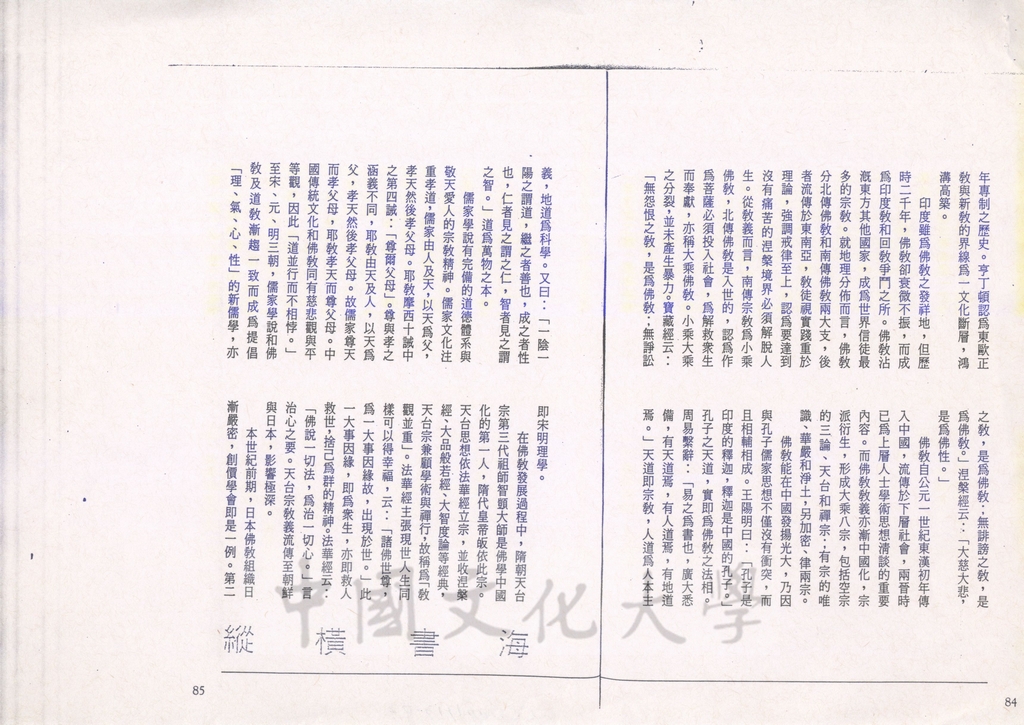 年專制之歷史。亨丁頓認爲東歐正
敎與新敎的界線爲一文化斷層,鴻
溝高築。
印度雖爲佛敎之發祥地,但歷
時二千年,佛敎卻衰微不振,而成
爲印度敎和回敎爭鬥之所。佛敎沾
溉東方其他國家,成爲世界信徒最
多的宗敎。就地理分佈而言,佛敎
分北傳佛敎和南傳佛敎兩大支,後
者流傳於東南亞,敎徒視實踐重於
理論,強調戒律至上,認爲要達到
沒有痛苦的涅槃境界必須解脫人
生。從敎義而言,南傳宗敎爲小乘
佛敎,北傳佛敎是入世的,認爲作
爲菩薩必須投入社會,爲解救衆生
而奉獻,亦稱大乘佛敎。小乘大乘
之分裂,並未產生暴力。寶藏經云:
「無怨恨之敎,是爲佛敎;無諍訟
之敎,是爲佛敎;無誹謗之敎,是
爲佛敎。」涅槃經云:「大慈大悲,
是爲佛性。」
佛敎自公元一世紀東漢初年傳
入中國,流傳於下層社會,兩晉時
已爲上層人士學術思想清談的重要
內容。而佛敎敎義亦漸中國化,宗
派衍生,形成大乘八宗,包括空宗
的三論、天台和禪宗;有宗的唯
識、華嚴和淨土,另加密、律兩宗。
佛敎能在中國發揚光大,乃因
與孔子儒家思想不僅沒有衝突,而
且相輔相成。王陽明曰:「孔子是
印度的釋迦,釋迦是中國的孔子。」
孔子之天道,實即爲佛敎之法相。
周易繫辭:「易之爲書也,廣大悉
備,有天道焉,有人道焉,有地道
焉。」天道即宗敎,人道爲人本主
84
義,地道爲科學。又曰:「一陰一
陽之謂道,繼之者善也,成之者性
也,仁者見之謂之仁,智者見之謂
之智。」道爲萬物之本。
儒家學說有完備的道德體系與
敬天愛人的宗敎精神。儒家文化注
重孝道,儒家由人及天,以天爲父,
孝天然後孝父母。耶敎摩西十誡中
之第四誡:「尊爾父母」。尊與孝之
涵義不同,耶敎由天及人,以天爲
父,孝天然後孝父母。故儒家尊天
而孝父母,耶敎孝天而尊父母。中
國傳統文化和佛敎同有慈悲觀與平
等觀,因此「道並行而不相悖。」
至宋、元、明三朝,儒家學說和佛
敎及道敎漸趨一致而成爲提倡
「理、氣、心、性」的新儒學,亦
即宋明理學。
在佛敎發展過程中,隋朝天台
宗第三代祖師智顗大師是佛學中國
化的第一人,隋代皇帝皈依此宗。
天台思想依法華經立宗,並收涅槃
經、大品般若經、大智度論等經典,
天台宗兼顧學術與禪行,故稱爲「敎
觀並重」。法華經主張現世人生同
樣可以得幸福,云:「諸佛世尊,
爲一大事因緣故,出現於世。」此
一大事因緣,即爲衆生,亦即救人
救世,捨己爲群的精神。法華經云:
「佛說一切法,爲治一切心。」言
治心之要。天台宗敎義流傳至朝鮮
與日本,影響極深。
本世紀前期,日本佛敎組織日
漸嚴密,創價學會即是一例。第二
縱橫書海
85
中國文化大學